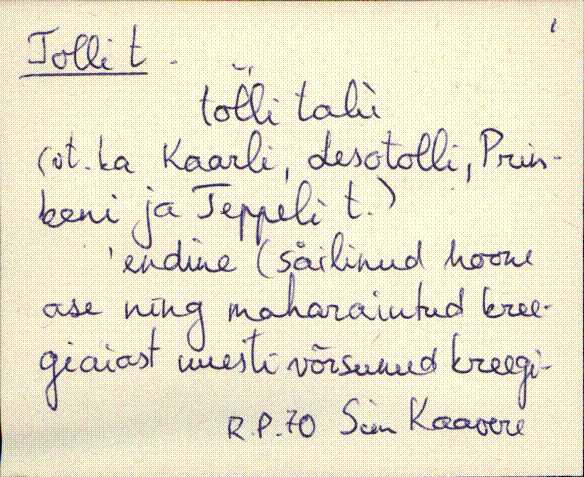 1
Tolli t.
tolli talu
(vt. ka Kaarli, Lesotolli, Prin-
keni ja Teppeli t.)
'endine (säilinud hoone
ase ning maharaiutud kree-
giaiast uuesti võrsunud kreegi-
R.P.70 Siim Kaavere